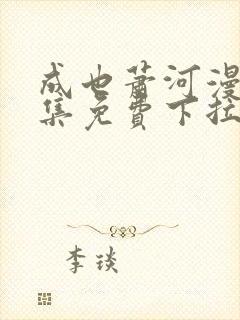 成也萧河漫
集免费下拉
李琰